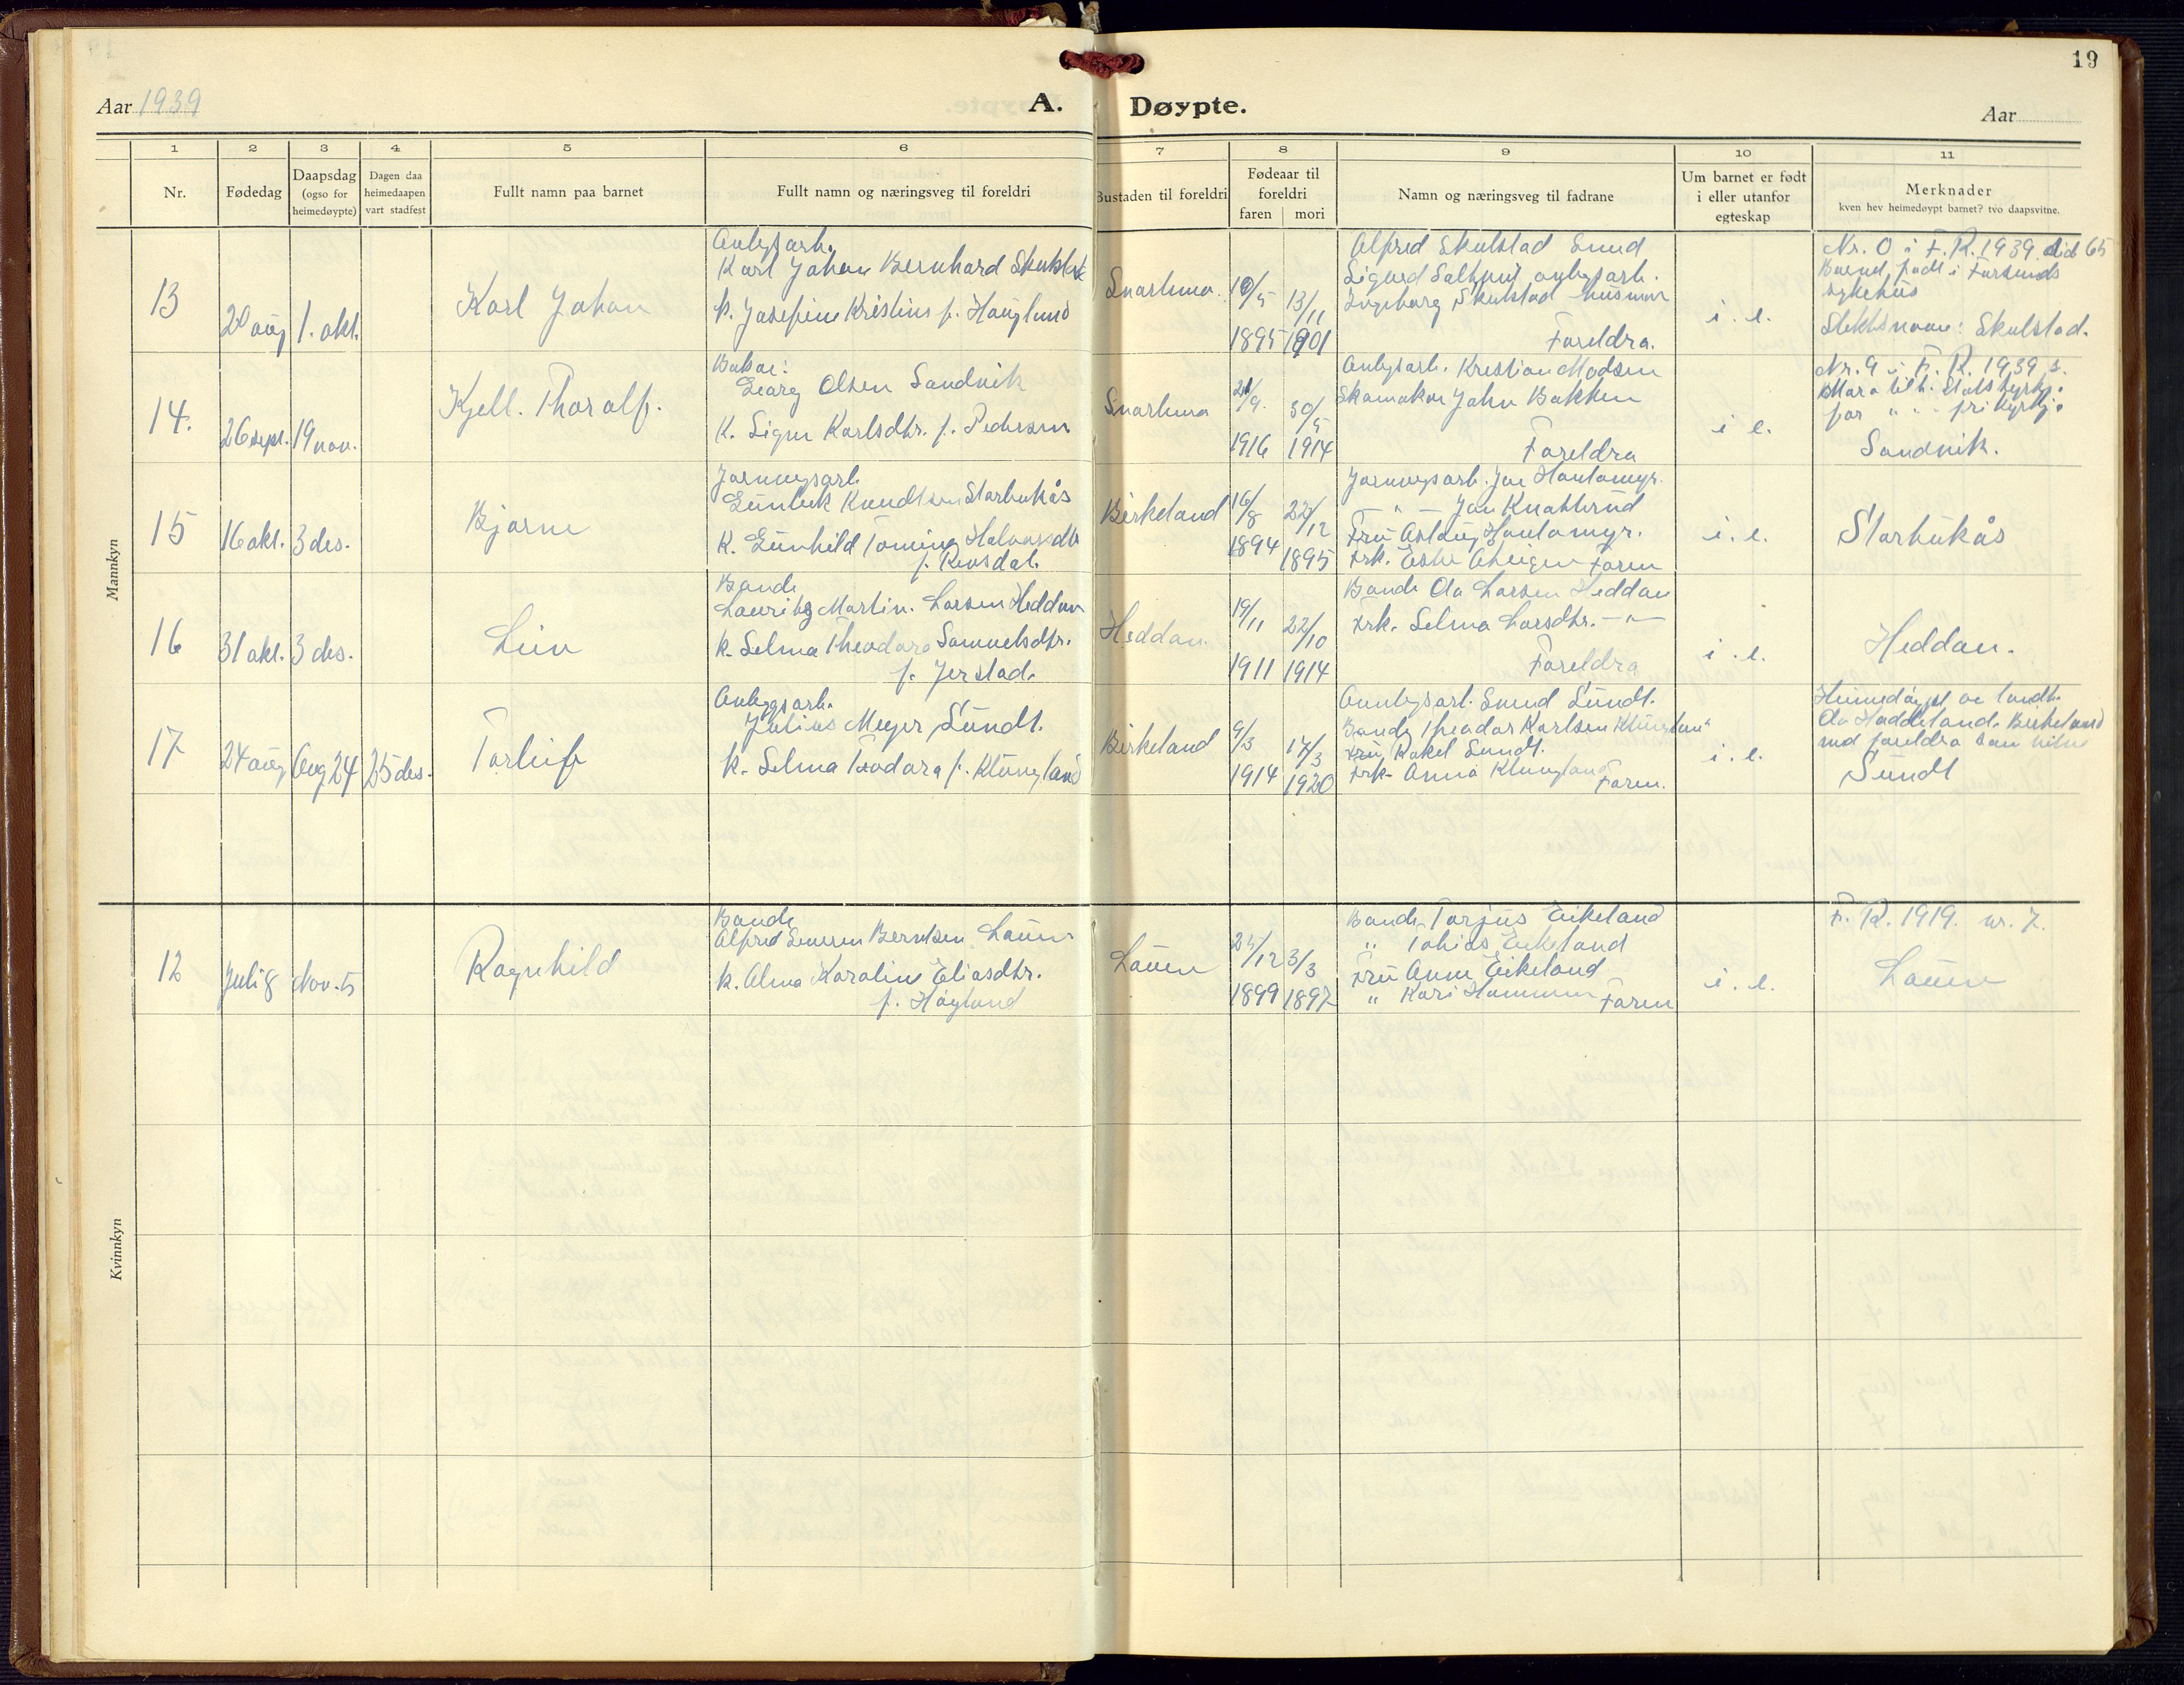 19
Aar 1939
A. Døypte.
Aar
1 2 3 4 5 6 7 8 9 10 11
Nr.
Fødedag
Daapsdag
(ogso for
heimedøypte)
Dagen daa
heimedaapen
vart stadfest
Fullt namn paa barnet
Fullt namn og næringsveg til foreldri
Bustaden til foreldri
Fødeaar til
foreldri
faren mori
Namn og næringsveg til fadrane
Um barnet er født
i eller utanfor
egteskap
Merknader
kven hev heimedøypt barnet? tvo daapsvitne.
Mannkyn
13
20 aug
1. okt.
Karl Johan
Anlegsarb.
Karl Johan Bernhard Skulstad
k. Josefine Kristine f. Hauglund
Snartemo.
10/5
1895
13/11
1901
Alfred Skulstad Smed
Sigurd anlegsarb.
Ingeborg Skulstad husmor
Foreldra.
i. e.
Nr. 0 i F. R. 1939 sid 65
Barnet født i Farsunds
sykehus
Slektsnavn: Skulstad.
14.
26 sept.
19 nov.
Kjell. Thoralf.
Bakar:
Georg Olsen Sandvik
k. Signe Karlsdtr. f. Pedersen
Snartemo
21/9.
1916
30/5
1914
Anlegsarb. Kristian Madsen
Skomakar John Bakken
Foreldra
i e.
Nr. 9 i F. R. 1939 s.
Mora tilh. Statskyrkj.
far " " frikyrkj.
Sandvik.
15
16 okt.
3 des.
Bjarne
Jarnvegsarb.
Gunleik Knudtsen Starbukås
k. Gunhild Tomine Halvorsdtr
f. Rensdal.
Birkeland
16/8
1894
22/12
1895
Jarnvegsarb. Jon Hautamyr.
" - Jon Knabberud
Fru Aslaug Hautamyr.
Frk. Faren
i. e.
Starbukås
16
31 okt.
3 des.
Leiv
Bonde
Lauritz Martin. Larsen Heddan
k. Selma Theodora Samuelsdtr.
f. Jerstad.
Heddan.
19/11
1911
22/10
1914
Bonde Ola Larsen Heddan
Frk. Selma Larsdtr. - " -
Foreldra
i. e.
Heddan.
17
24 aug
Aug 24
25 des.
Torleif
Anleggsarb.
Julius Meyer Sundt.
k. Selma Teodora f. Klungland
Birkeland
9/3
1914
17/3
1920
Anlegsarb. Smed Sundt.
Bonde Theodor Karlsen Klungland
Fru Rakel Sundt.
Frk. Anna Klungland
Faren.
i. e.
Heimedøypt av landh.
Ola Haddeland. Birkeland
med foreldra som vitne
Sundt
Kvinnkyn
12
Juli 8
Nov. 5
Ragnhild
Bonde
Alfred Severin Berntsen Lauen
k. Alma Karoline Eliasdtr.
f. Høyland
Lauen
24/12
1899
3/3
1897
Bonde Torjus Eikeland
" Tobias Eikeland
Fru Anne Eikeland
" Kari Hammen Faren
i. e.
F. R. 1919. nr. 7.
Lauen